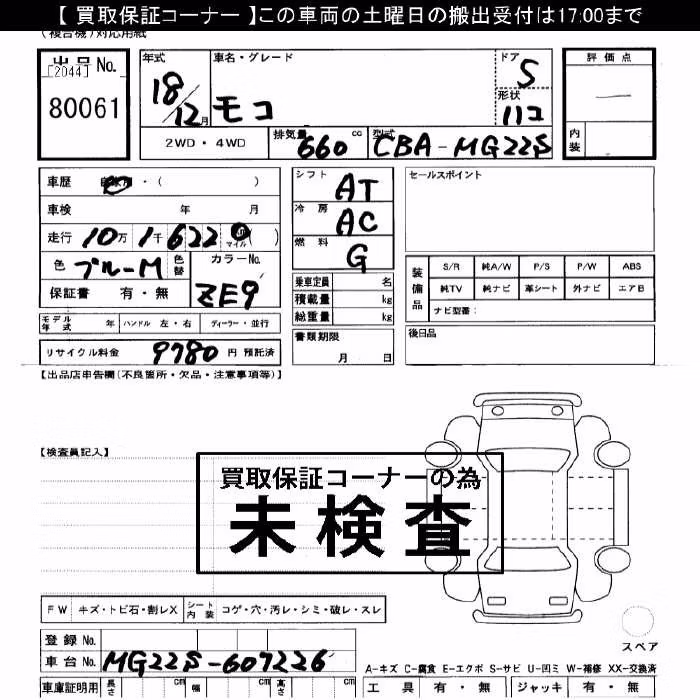 【 買取保証コーナー 】この車両の土曜日の搬出受付は17:00まで
(複合機)対応用紙
出品 No.
[2044]
80061
年式
18/12月
車名・グレード
モコ
ドア
5
形状
ハコ
評価点
—
内装
2WD・4WD
排気量
660
cc
型式
CBA-MG22S
車歴
自家用・( )
車検 年 月
走行 10万 1千 622 ㎞ マイル ( )
色 ブルーM
色替
カラーNo.
ZE9
保証書 有・無
シフト
AT
冷房
AC
燃料
G
乗車定員 名
積載量 kg
総重量 kg
書類期限
月 日
セールスポイント
装備品
S/R 純A/W P/S P/W ABS
純TV 純ナビ 革シート 外ナビ エアB
ナビ型番:
後日品
モデル年式 年 ハンドル 左・右 ディーラー・並行
リサイクル料金 9780 円 預託済
【出品店申告欄(不良箇所・欠品・注意事項等)】
【検査員記入】
買取保証コーナーの為
未検査
FW キズ・トビ石・割レX シート内装 コゲ・穴・汚レ・シミ・破レ・スレ
スペア
登録 No.
車台No. MG22S-607226
A-キズ C-腐食 E-エクボ S-サビ U-凹ミ W-補修 XX-交換済
車庫証明用 長さ cm 幅 cm 高さ cm
工具 有・無 ジャッキ 有・無